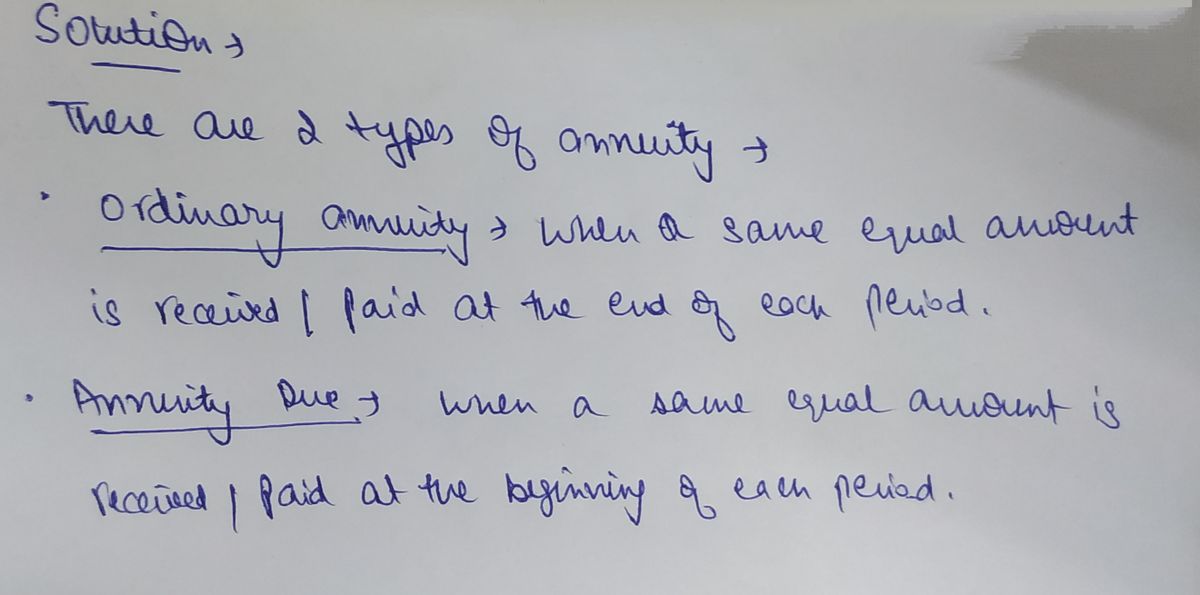 Solution →
There are 2 types of annuity →
• Ordinary annuity → when a same equal amount
is received / paid at the end of each period.
• Annuity Due → when a same equal amount is
received / paid at the beginning of each period.